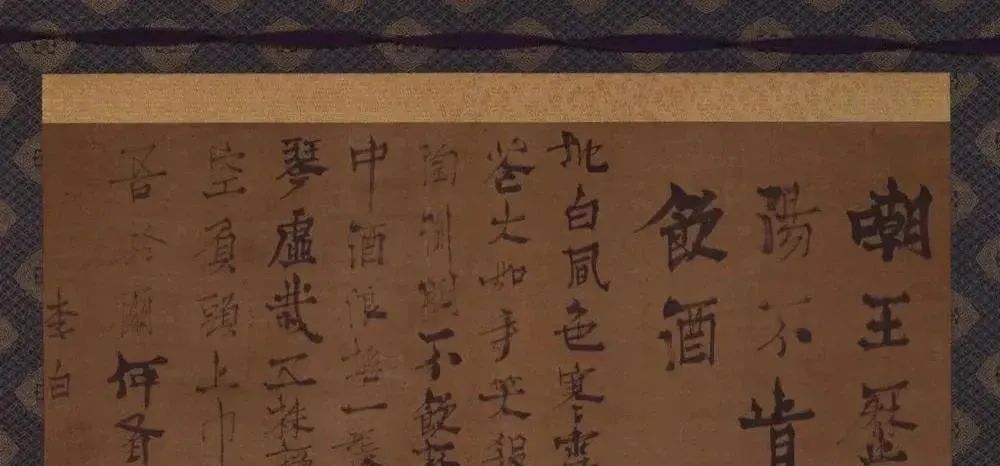 嘲王歷
陽不肯
飲酒
地白風色寒雪
花大如手笑殺
陶渕明不飲
中酒浪撫一張
琴虛栽五株
空負頭上巾
吾於爾何有
李白